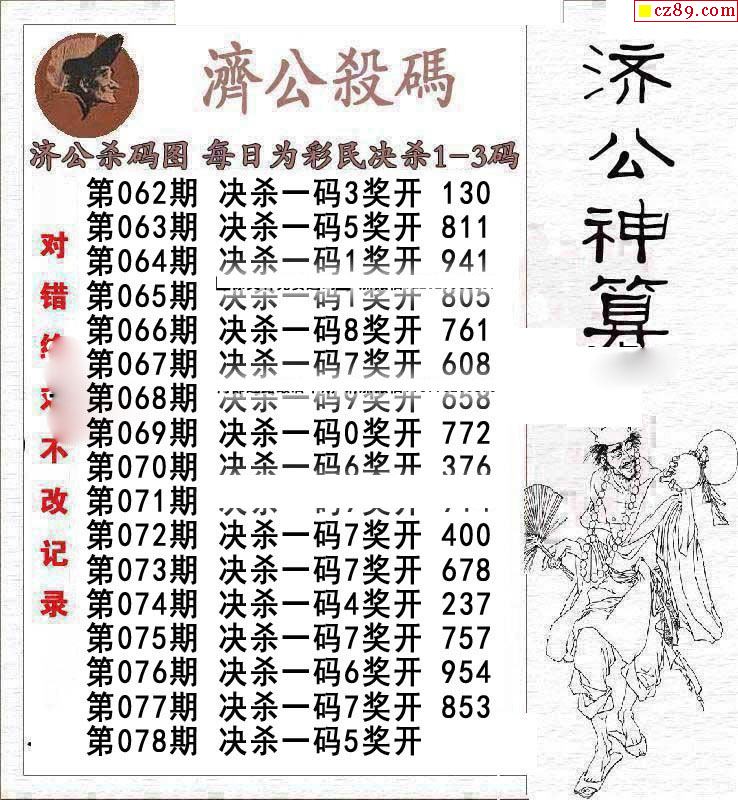 cz89.com
濟公殺碼
济公杀码图 每日为彩民决杀1-3码
第062期 决杀一码3奖开 130
第063期 决杀一码5奖开 811
第064期 决杀一码1奖开 941
第065期 决杀一码1奖开 805
第066期 决杀一码8奖开 761
第067期 决杀一码7奖开 608
第068期 决杀一码9奖开 658
第069期 决杀一码0奖开 772
第070期 决杀一码6奖开 376
第071期
第072期 决杀一码7奖开 400
第073期 决杀一码7奖开 678
第074期 决杀一码4奖开 237
第075期 决杀一码7奖开 757
第076期 决杀一码6奖开 954
第077期 决杀一码7奖开 853
第078期 决杀一码5奖开
对错绝对不改记录
济公神算